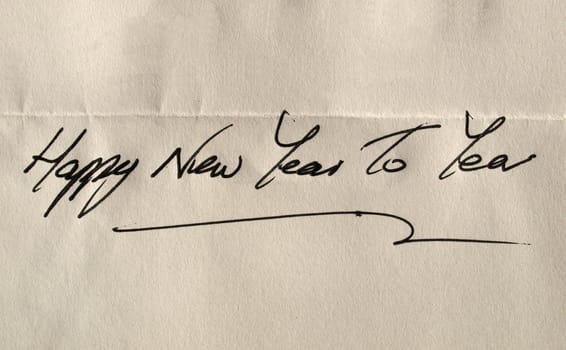 Happy New Year To Year